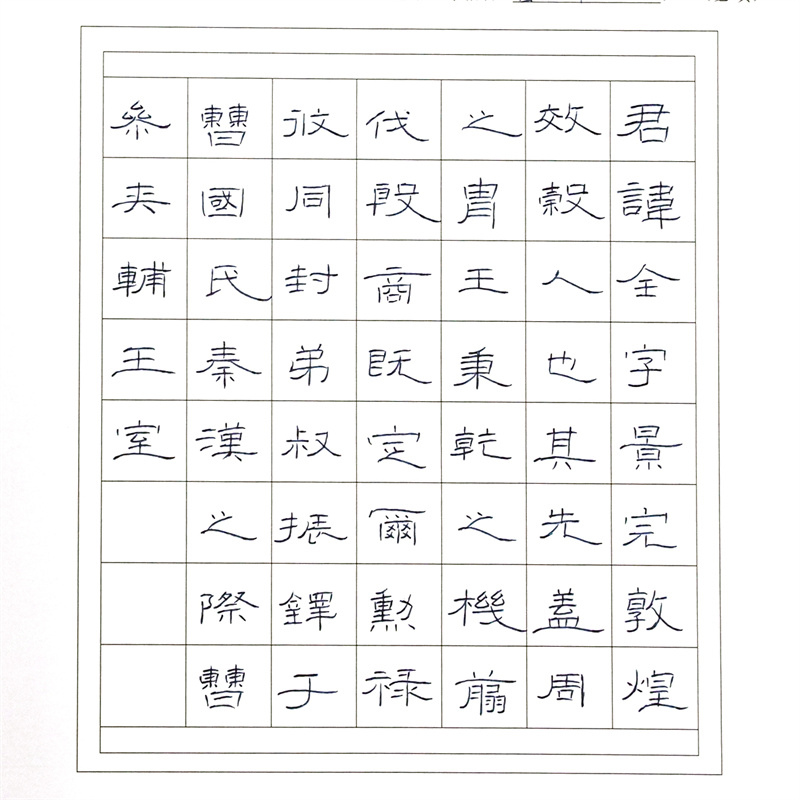 君諱全字景完敦煌
效穀人也其先盖周
之胄王秉乾之機翦
伐殷商既定爾勲禄
攸同封弟叔振鐸于
曹國氏秦漢之際曹
叅夾輔王室